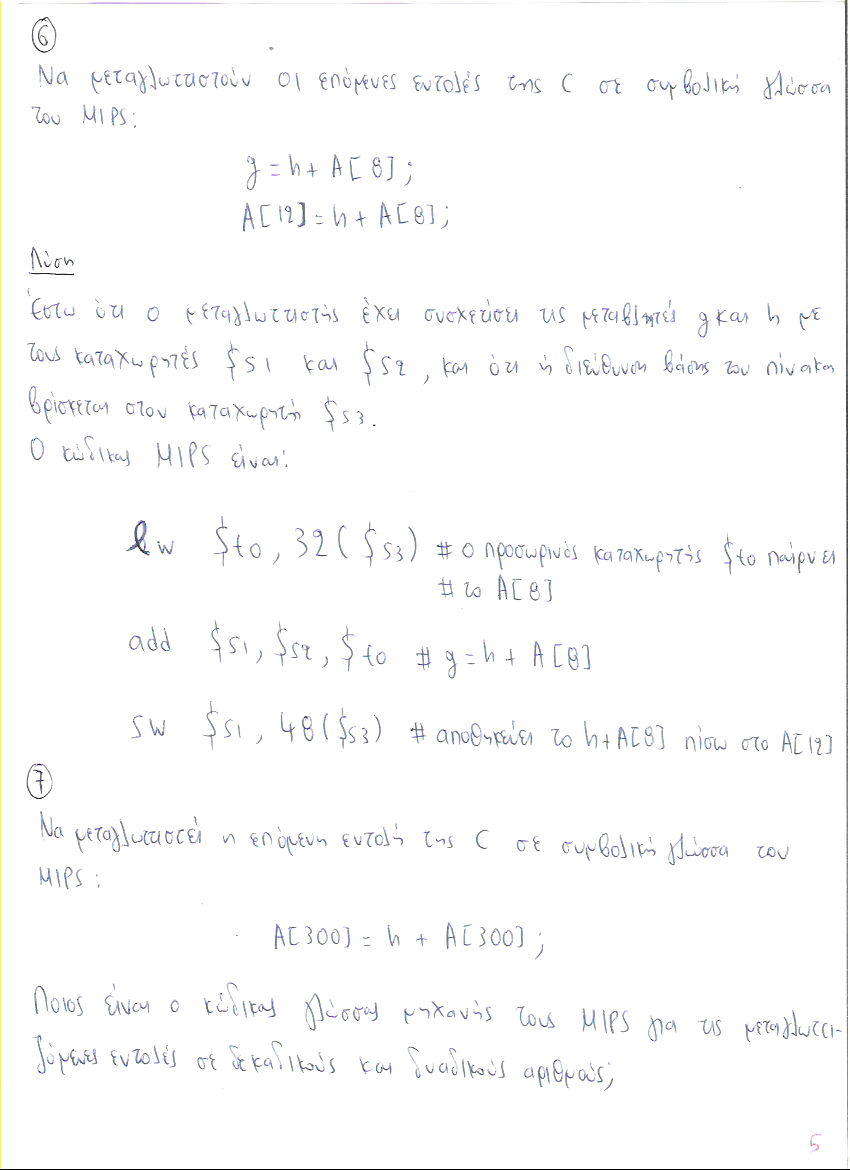 6
Να μεταγλωττιστούν οι επόμενες εντολές της C σε συμβολική γλώσσα
του MIPS:
g = h + A[8];
A[12] = h + A[8];
Λύση
Έστω ότι ο μεταγλωττιστής έχει συσχετίσει τις μεταβλητές g και h με
τους καταχωρητές $s1 και $s2, και ότι η διεύθυνση βάσης του πίνακα
βρίσκεται στον καταχωρητή $s3.
Ο κώδικας MIPS είναι:
lw $t0, 32($s3) # ο προσωρινός καταχωρητής $t0 παίρνει
# το A[8]
add $s1, $s2, $t0 # g = h + A[8]
sw $s1, 48($s3) # αποθηκεύει το h+A[8] πίσω στο A[12]
7
Να μεταγλωττιστεί η επόμενη εντολή της C σε συμβολική γλώσσα του
MIPS:
A[300] = h + A[300];
Ποιος είναι ο κώδικας γλώσσας μηχανής τους MIPS για τις μεταγλωττι-
ζόμενες εντολές σε δεκαδικούς και δυαδικούς αριθμούς;
5